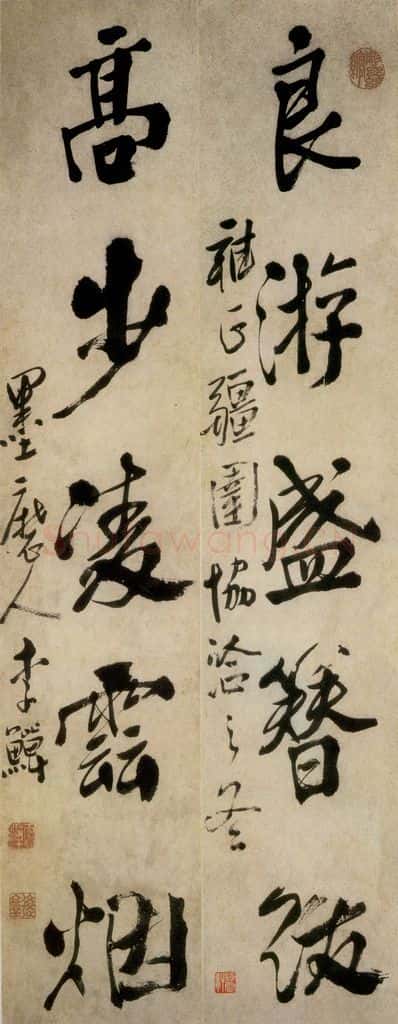 良游盛簪紱
雍正疆圉協洽之冬
高步凌雲烟
墨磨人李鱓